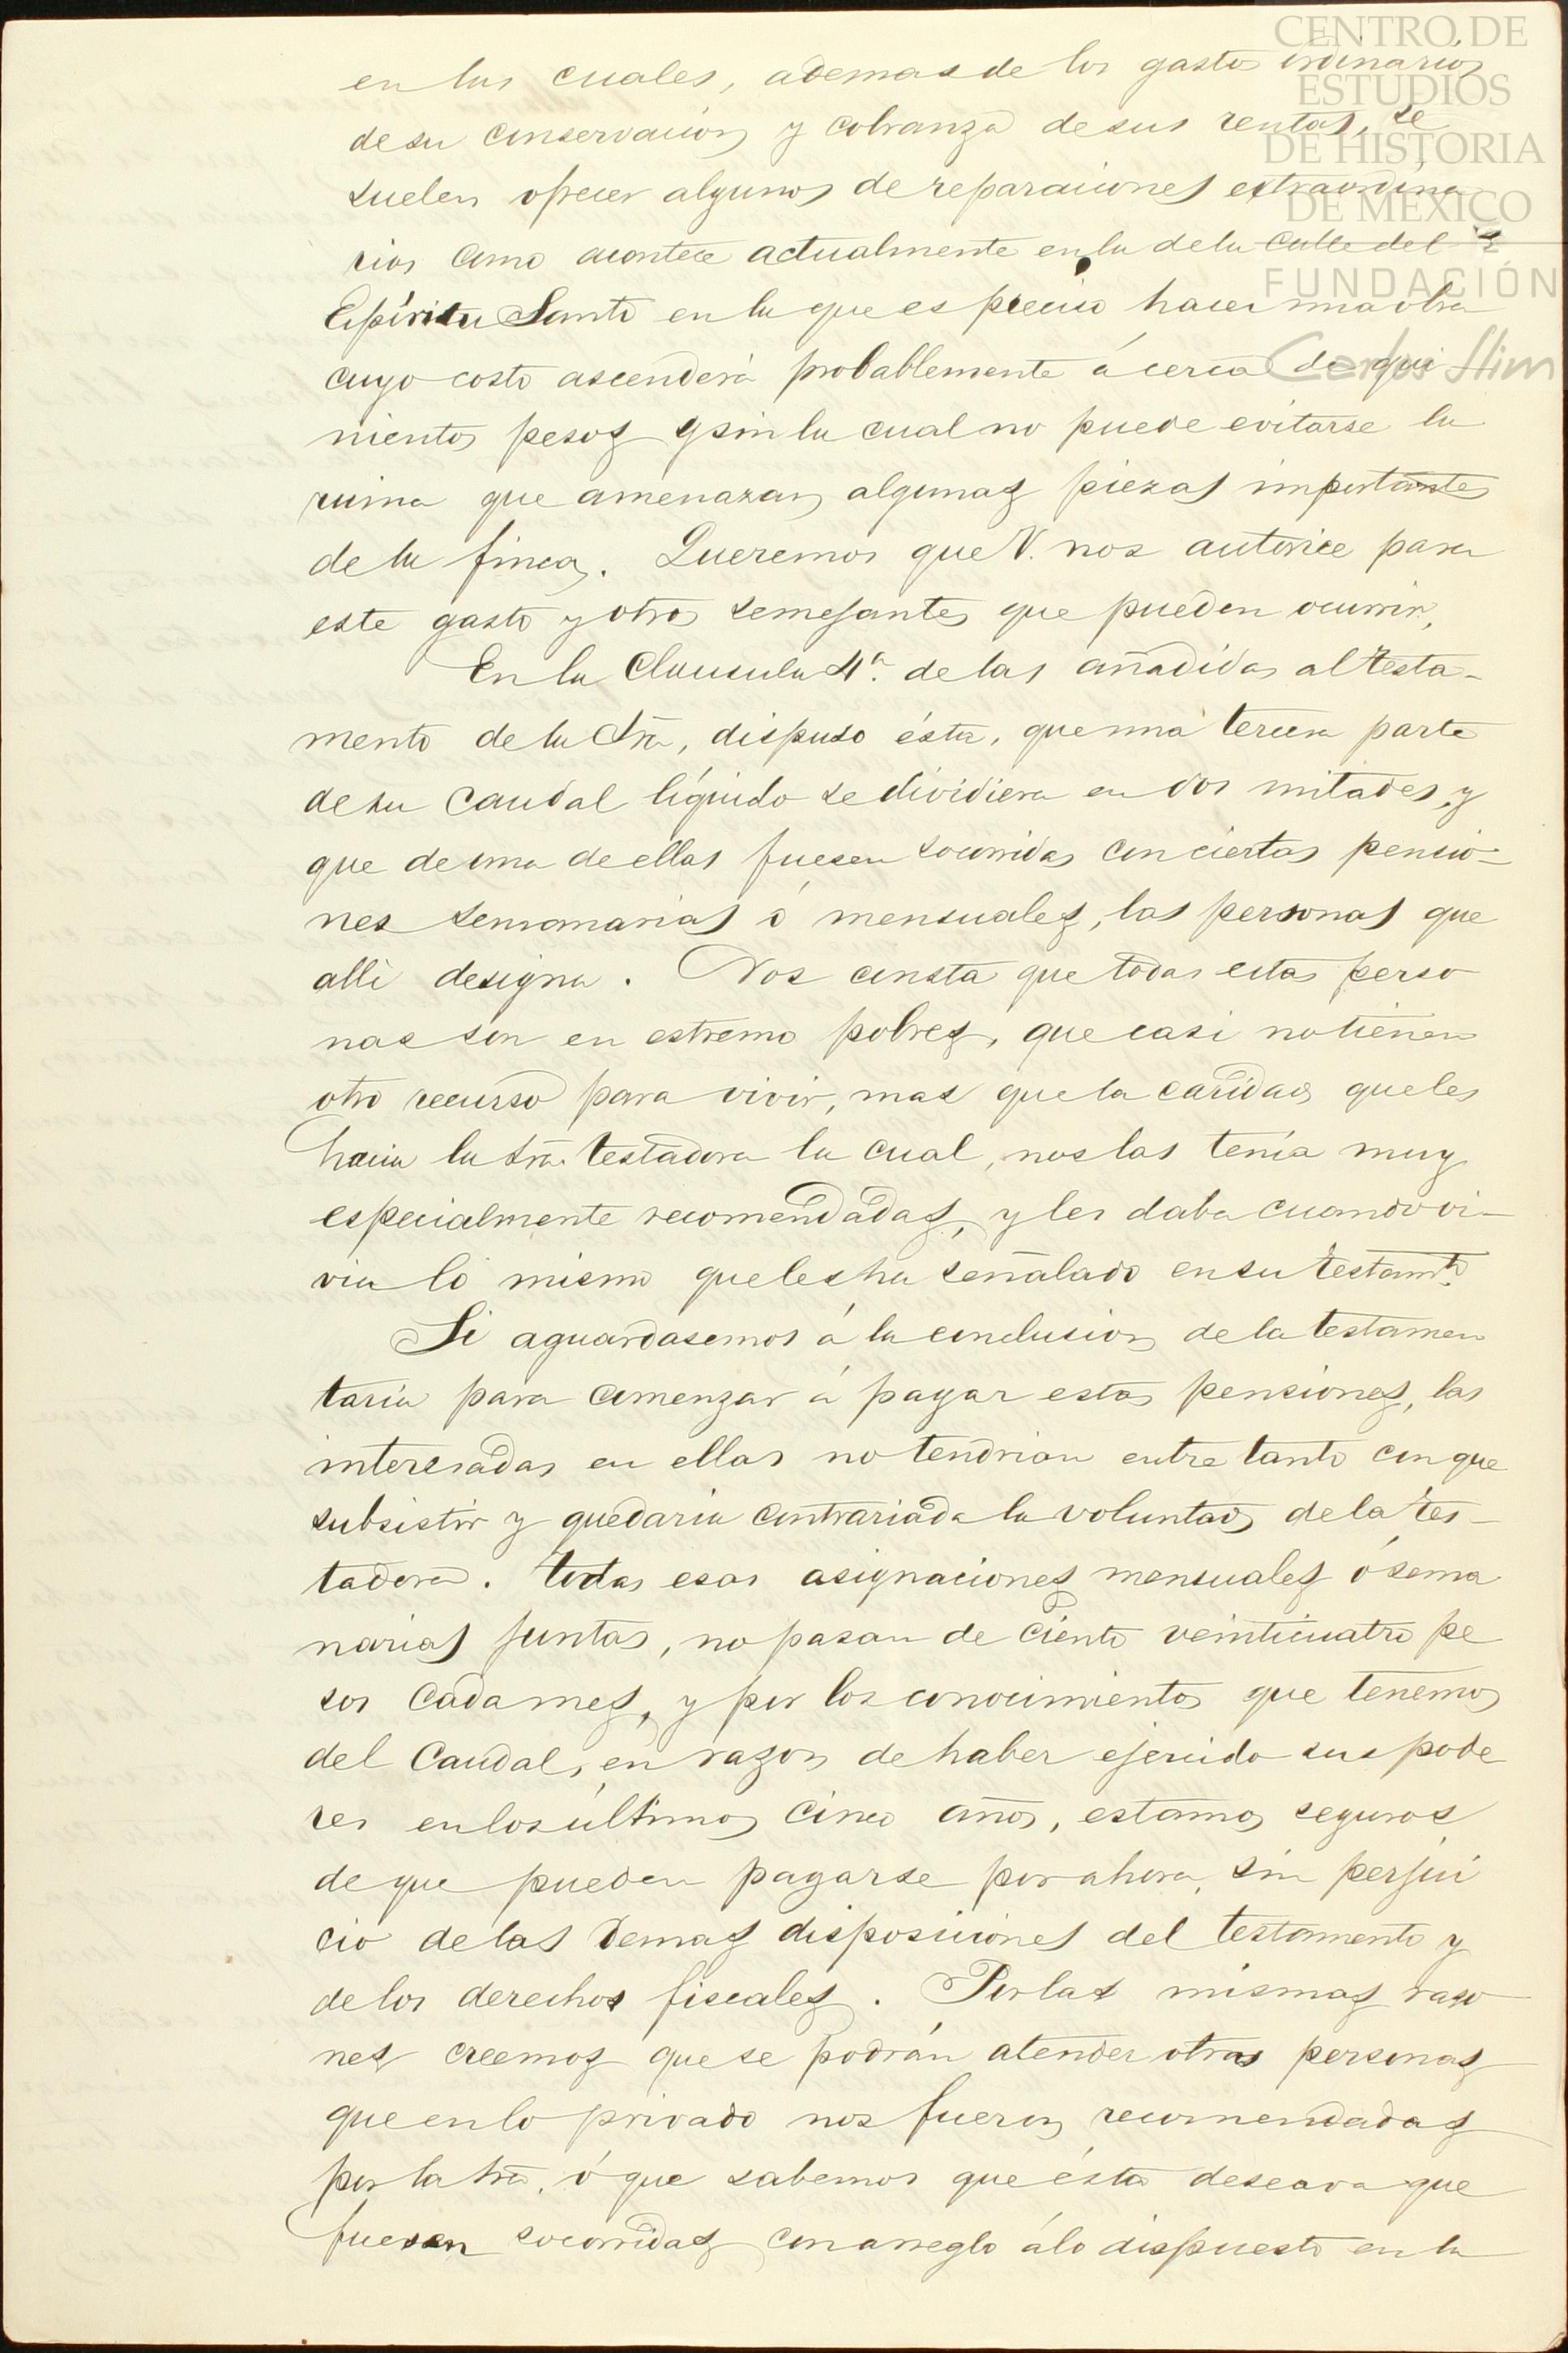 CENTRO DE
ESTUDIOS
DE HISTORIA
DE MEXICO
FUNDACIÓN
Carlos Slim
en las cuales, ademas de los gastos ordinarios
de su conservacion y cobranza de sus rentas, se
suelen ofrecer algunos de reparaciones extraordina
rios como acontece actualmente en la de la Calle del
Espíritu Santo en la que es preciso hacer una obra
cuyo costo ascenderá probablemente á cerca de qui
nientos pesos y sin la cual no puede evitarse la
ruina que amenazan algunas piezas importantes
de la finca. Queremos que V. nos autorice para
este gasto y otros semejantes que pueden ocurrir,
En la Clausula 4ª. de las añadidas al testa-
mento de la Sra, dispuso ésta, que una tercera parte
de su caudal líquido se dividiera en dos mitades, y
que de una de ellas fuesen socorridas con ciertas pensio-
nes semanarias ó mensuales, las personas que
alli designa. Nos consta que todas estas perso
nas son en estremo pobres, que casi no tienen
otro recurso para vivir, mas que la caridad que les
hacia la Sra. testadora la cual, nos las tenía muy
especialmente recomendadas, y les daba cuando vi-
via lo mismo que les ha señalado en su testamto.
Si aguardasemos á la conclusion de la testamen
taría para comenzar á pagar estas pensiones, las
interesadas en ellas no tendrian entre tanto con que
subsistir y quedaria contrariada la voluntad de la tes-
tadora. todas esas asignaciones mensuales ó sema
narias juntas, no pasan de ciento veinticuatro pe
sos cada mes, y por los conocimientos que tenemos
del Caudal, en razon de haber ejercido sus pode
res en los últimos cinco años, estamos seguros
de que pueden pagarse por ahora, sin perjui
cio de las demas disposiciones del testamento y
de los derechos fiscales. Por las mismas razo
nes creemos que se podrán atender otras personas
que en lo privado nos fueron recomendadas
por la Sra, ó que sabemos que ésta deseava que
fuesen socorridas con arreglo á lo dispuesto en la